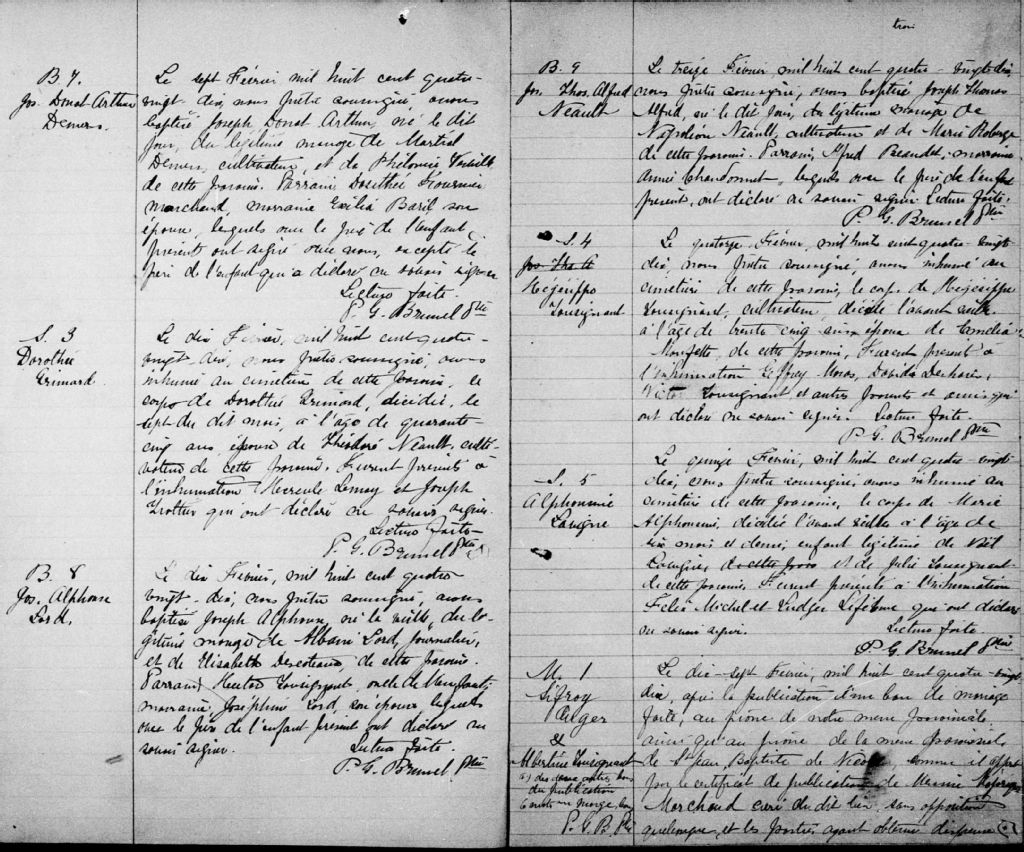 B 7.
Jos. Donat Arthur
Demers.
Le sept Février mil huit cent quatre-
vingt-dix, nous prêtre soussigné, avons
baptisé Joseph Donat Arthur, né le dit
jour, du légitime mariage de Martial
Demers, cultivateur, et de Philomie
de cette paroisse. Parrain Dorithée
marchand, marraine Exilia Baril son
épouse, lesquels avec le père de l'enfant
présent ont signé avec nous, excepté le
père de l'enfant qui a déclaré ne savoir signer
Lecture faite.
P. G. Brunel Ptre
S. 3
Dorothée
Grimard.
Le dix Février, mil huit cent quatre-
vingt-dix, nous prêtre soussigné, avons
inhumé au cimetière de cette paroisse, le
corps de Dorothée Grimard, décédée, le
sept du dit mois, à l'âge de quarante-
cinq ans, épouse de Théodore Neault, culti-
vateur de cette paroisse. Furent présents à
l'inhumation Hercule Lemay et Joseph
Trottier qui ont déclaré ne savoir signer.
Lecture faite
P. G. Brunel Ptre
B. 8
Jos. Alphonse
Lord.
Le dix Février, mil huit cent quatre
vingt-dix, nous prêtre soussigné, avons
baptisé Joseph Alphonse, né la veille, du lé-
gitime mariage de Albani Lord, journalier,
et de Elisabeth Descoteaux, de cette paroisse.
Parrain, Hector Lousignant, oncle de l'enfant,
marraine, Josephine Lord, son épouse, lesquels
avec le père de l'enfant présent ont déclaré ne
savoir signer.
Lecture faite.
P. G. Brunel Ptre
trois
B. 9
Jos. Thos. Alfred
Neault
Le treize Février mil huit cent quatre-vingt-dix,
nous prêtre soussigné, avons baptisé Joseph Thomas
Alfred, né le dit jour, du légitime mariage de
Napoléon Neault, cultivateur et de Marie Roberge
de cette paroisse. Parrain, Alfred Beaudet, marraine
Annie Chandonnet, lesquels avec le père de l'enfant
présent, ont déclaré ne savoir signer Lecture faite.
P. G. Brunel Ptre
S. 4
Jos Tho A
Hégésippe
Lousignant
Le quatorze Février, mil huit cent quatre-vingt
dix, nous prêtre soussigné, avons inhumé au
cimetière de cette paroisse, le corps de Hégésippe
Lousignant, cultivateur, décédé l'avant veille
à l'âge de trente cinq ans, époux de Amélia
de cette paroisse, Furent présents à
l'inhumation Geffrey Moras, Davida
Lousignant et autres parents et amis qui
ont déclaré ne savoir signer. Lecture faite.
P. G. Brunel Ptre
S. 5
Alphonsine
Le quinze Février, mil huit cent quatre-vingt
dix, nous prêtre soussigné, avons inhumé au
cimetière de cette paroisse, le corps de Marie
Alphonsine, décédée l'avant veille à l'âge de
six mois et demi, enfant légitime de
de cette paroisse et de Julie Lousignant
de cette paroisse. Furent présents à l'inhumation
Felix Michel et Ludger Lefebvre qui ont déclaré
ne savoir signer.
Lecture faite
P. G. Brunel Ptre
M. 1
Sifroy
Auger
&
Albertine Lousignant
des deux autres bans
de publication
P. G. B Ptre
Le dix-sept Février, mil huit cent quatre-vingt
dix, après la publication d'un ban de mariage
faite, au prône de notre messe paroissiale,
ainsi qu'au prône de la messe paroissiale
de St Jean Baptiste de Nicolet, comme il appert
par le certificat de publication de Messire
Marchand curé du dit lieu, sans opposition
quelconque, et les parties ayant obtenu dispense